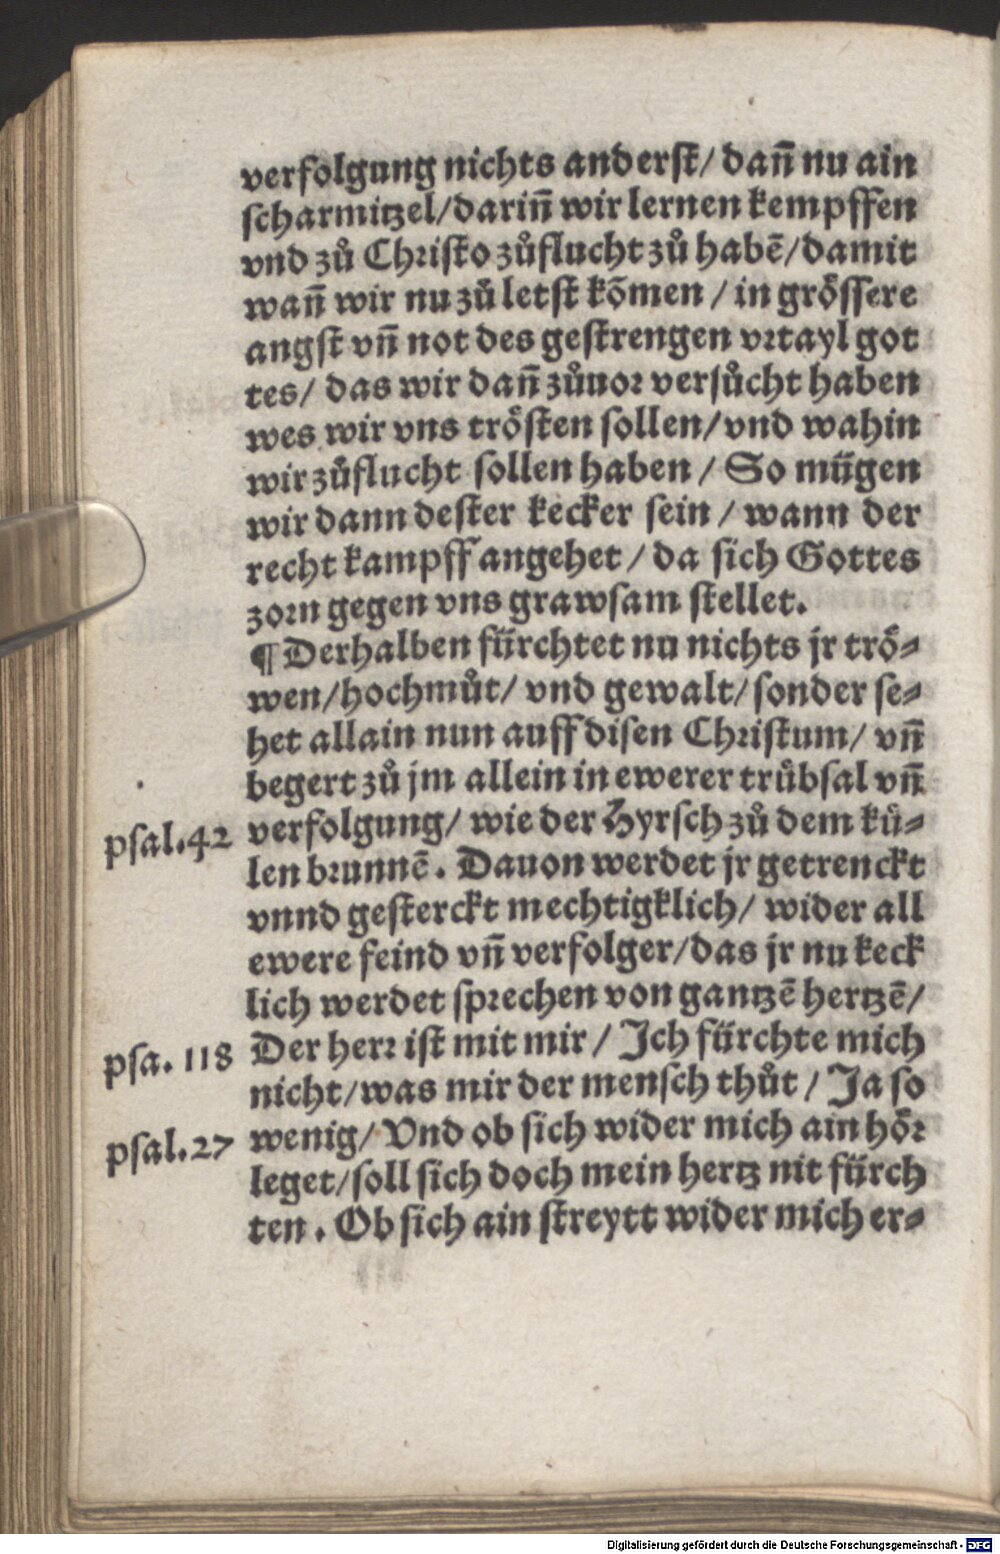 verfolgung nichts anderst/ dañ nu ain
scharmitzel/dariñ wir lernen kempffen
vnd zů Christo zůflucht zů habẽ/damit
wañ wir nu zů letst kõmen / in grössere
angst vñ not des gestrengen vrtayl got
tes/ das wir dañ zůuor versůcht haben
wes wir vns trösten sollen/vnd wahin
wir zůflucht sollen haben / So mügen
wir dann dester kecker sein / wann der
recht kampff angehet / da sich Gottes
zorn gegen vns grawsam stellet.
¶ Derhalben fürchtet nu nichts jr trö⸗
wen/hochmůt/ vnd gewalt/sonder se⸗
het allain nun auff disen Christum/ vñ
begert zů jm allein in ewerer trübsal vñ
psal.42 verfolgung/ wie der Hyrsch zů dem kü⸗
len brunnẽ. Dauon werdet jr getrenckt
vnnd gesterckt mechtigklich/ wider all
ewere feind vñ verfolger/das jr nu keck
lich werdet sprechen von gantzẽ hertzẽ/
psa. 118 Der herr ist mit mir / Ich fürchte mich
nicht/was mir der mensch thůt / Ja so
psal.27 wenig/ Vnd ob sich wider mich ain hör
leget/soll sich doch mein hertz nit fürch
ten. Ob sich ain streytt wider mich er⸗
Digitalisierung gefördert durch die Deutsche Forschungsgemeinschaft - DFG